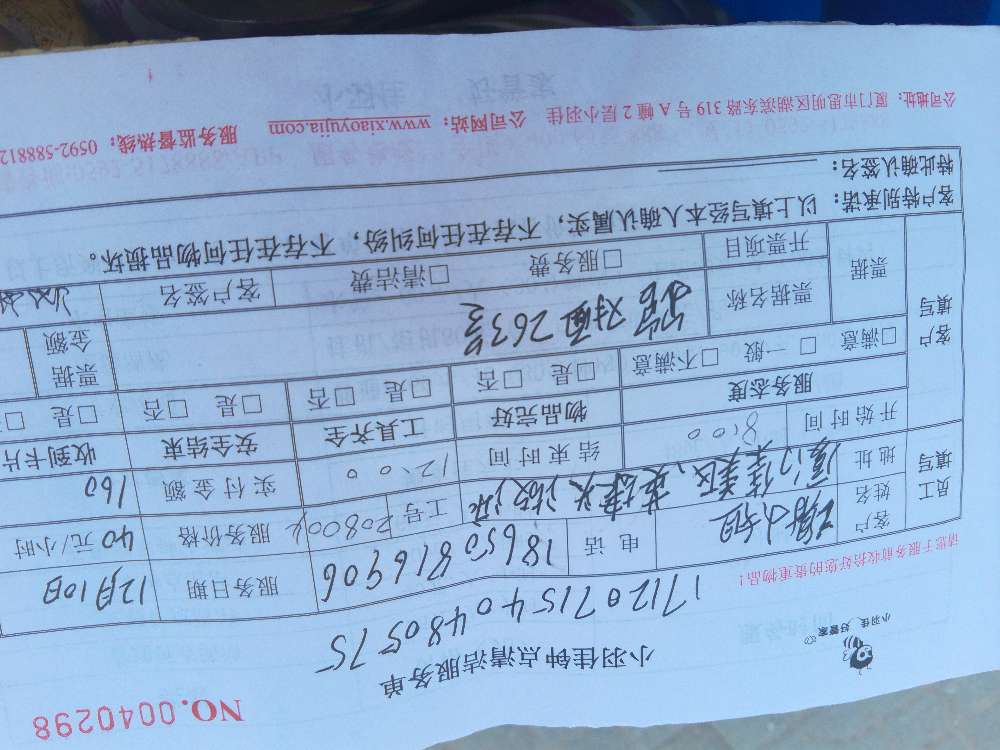 NO.0040298
小羽佳钟点清洁服务单
小羽佳 好管家
17120715404805 75
请您于服务前收拾好您的贵重物品!
员工填写
客户姓名 小姐 电话 18650816906 服务日期 12月10日
地址 厦门集美区 工号 20800 服务价格 40元/小时
开始时间 8:00 结束时间 12:00 实付金额 160
客户填写
服务态度 物品完好 工具齐全 安全结束 收到卡片
□满意 □一般 □不满意 □是 □否 □是 □否 □是 □否 □是 □
票据 票据名称 对面263号 票据金额
开票项目 □服务费 □清洁费 客户签名
客户特别承诺: 以上填写经本人确认属实,不存在任何纠纷,不存在任何物品损坏。
特此确认签名:
公司地址: 厦门市思明区湖滨东路319号A幢2层小羽佳 公司网站: www.xiaoyujia.com 服务监督热线: 0592-588812